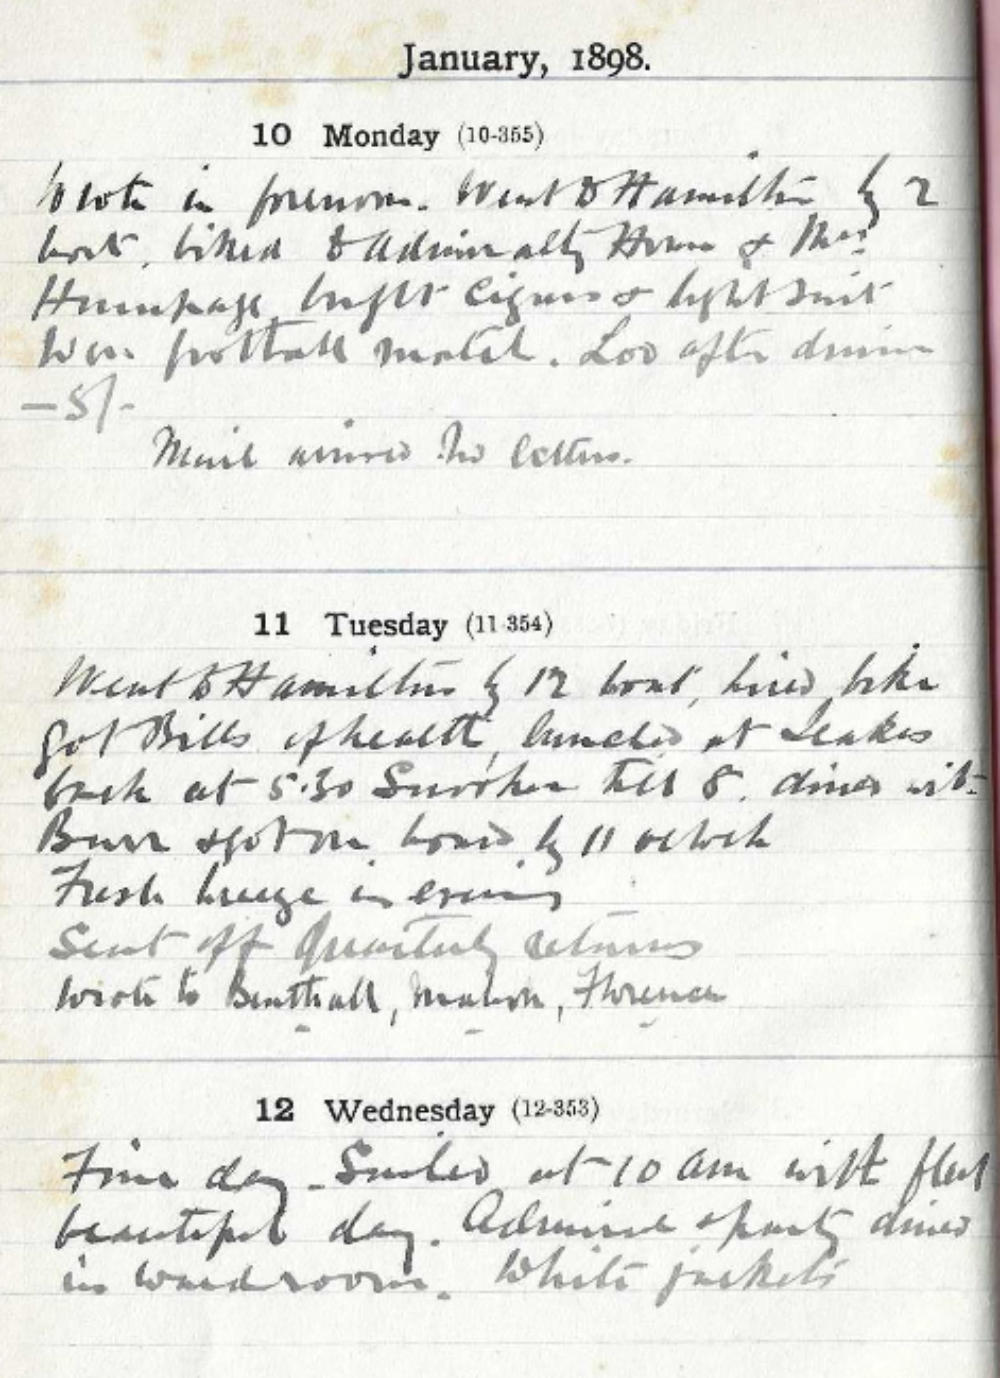 January, 1898.
10 Monday (10-355)
Wrote in forenoon. Went to Hamilton by 2
boat, biked to Admiralty House & Mrs
Humpage, bught cigars & light suit
Won football match. Loo after dinner
—5/-
Mail arrived No letters.
11 Tuesday (11-354)
Went to Hamilton by 12 boat, hired bike
got Bills of health, lunched at
back at 5.30 Snooker till 8. dined with
Burr & got on board by 11 oclock
Fresh breeze in evening
Sent off Quarterly returns
Wrote to Benthall, , Florence
12 Wednesday (12-353)
Fine day - Sailed at 10 am with fleet
beautiful day. Admiral & party dined
in wardroom. White jackets